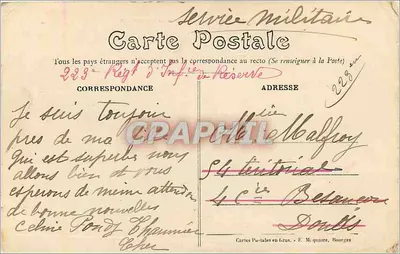 Service Militaire
Carte Postale
Tous les pays étrangers n'acceptent pas la correspondance au recto (Se renseigner à la Poste)
223e Régt d'Inf ie en Réserve
CORRESPONDANCE
ADRESSE
223
Je suis toujour
pres de ma
Qui est superbe nous
allons bien et vous
esperons de meme attendon
de bonne nouvelles
Celine
Malfroy
54 territorial
4 Cie Besançon
Doubs
CPARHIL
Cartes Postales en Gros. - E. Bourges